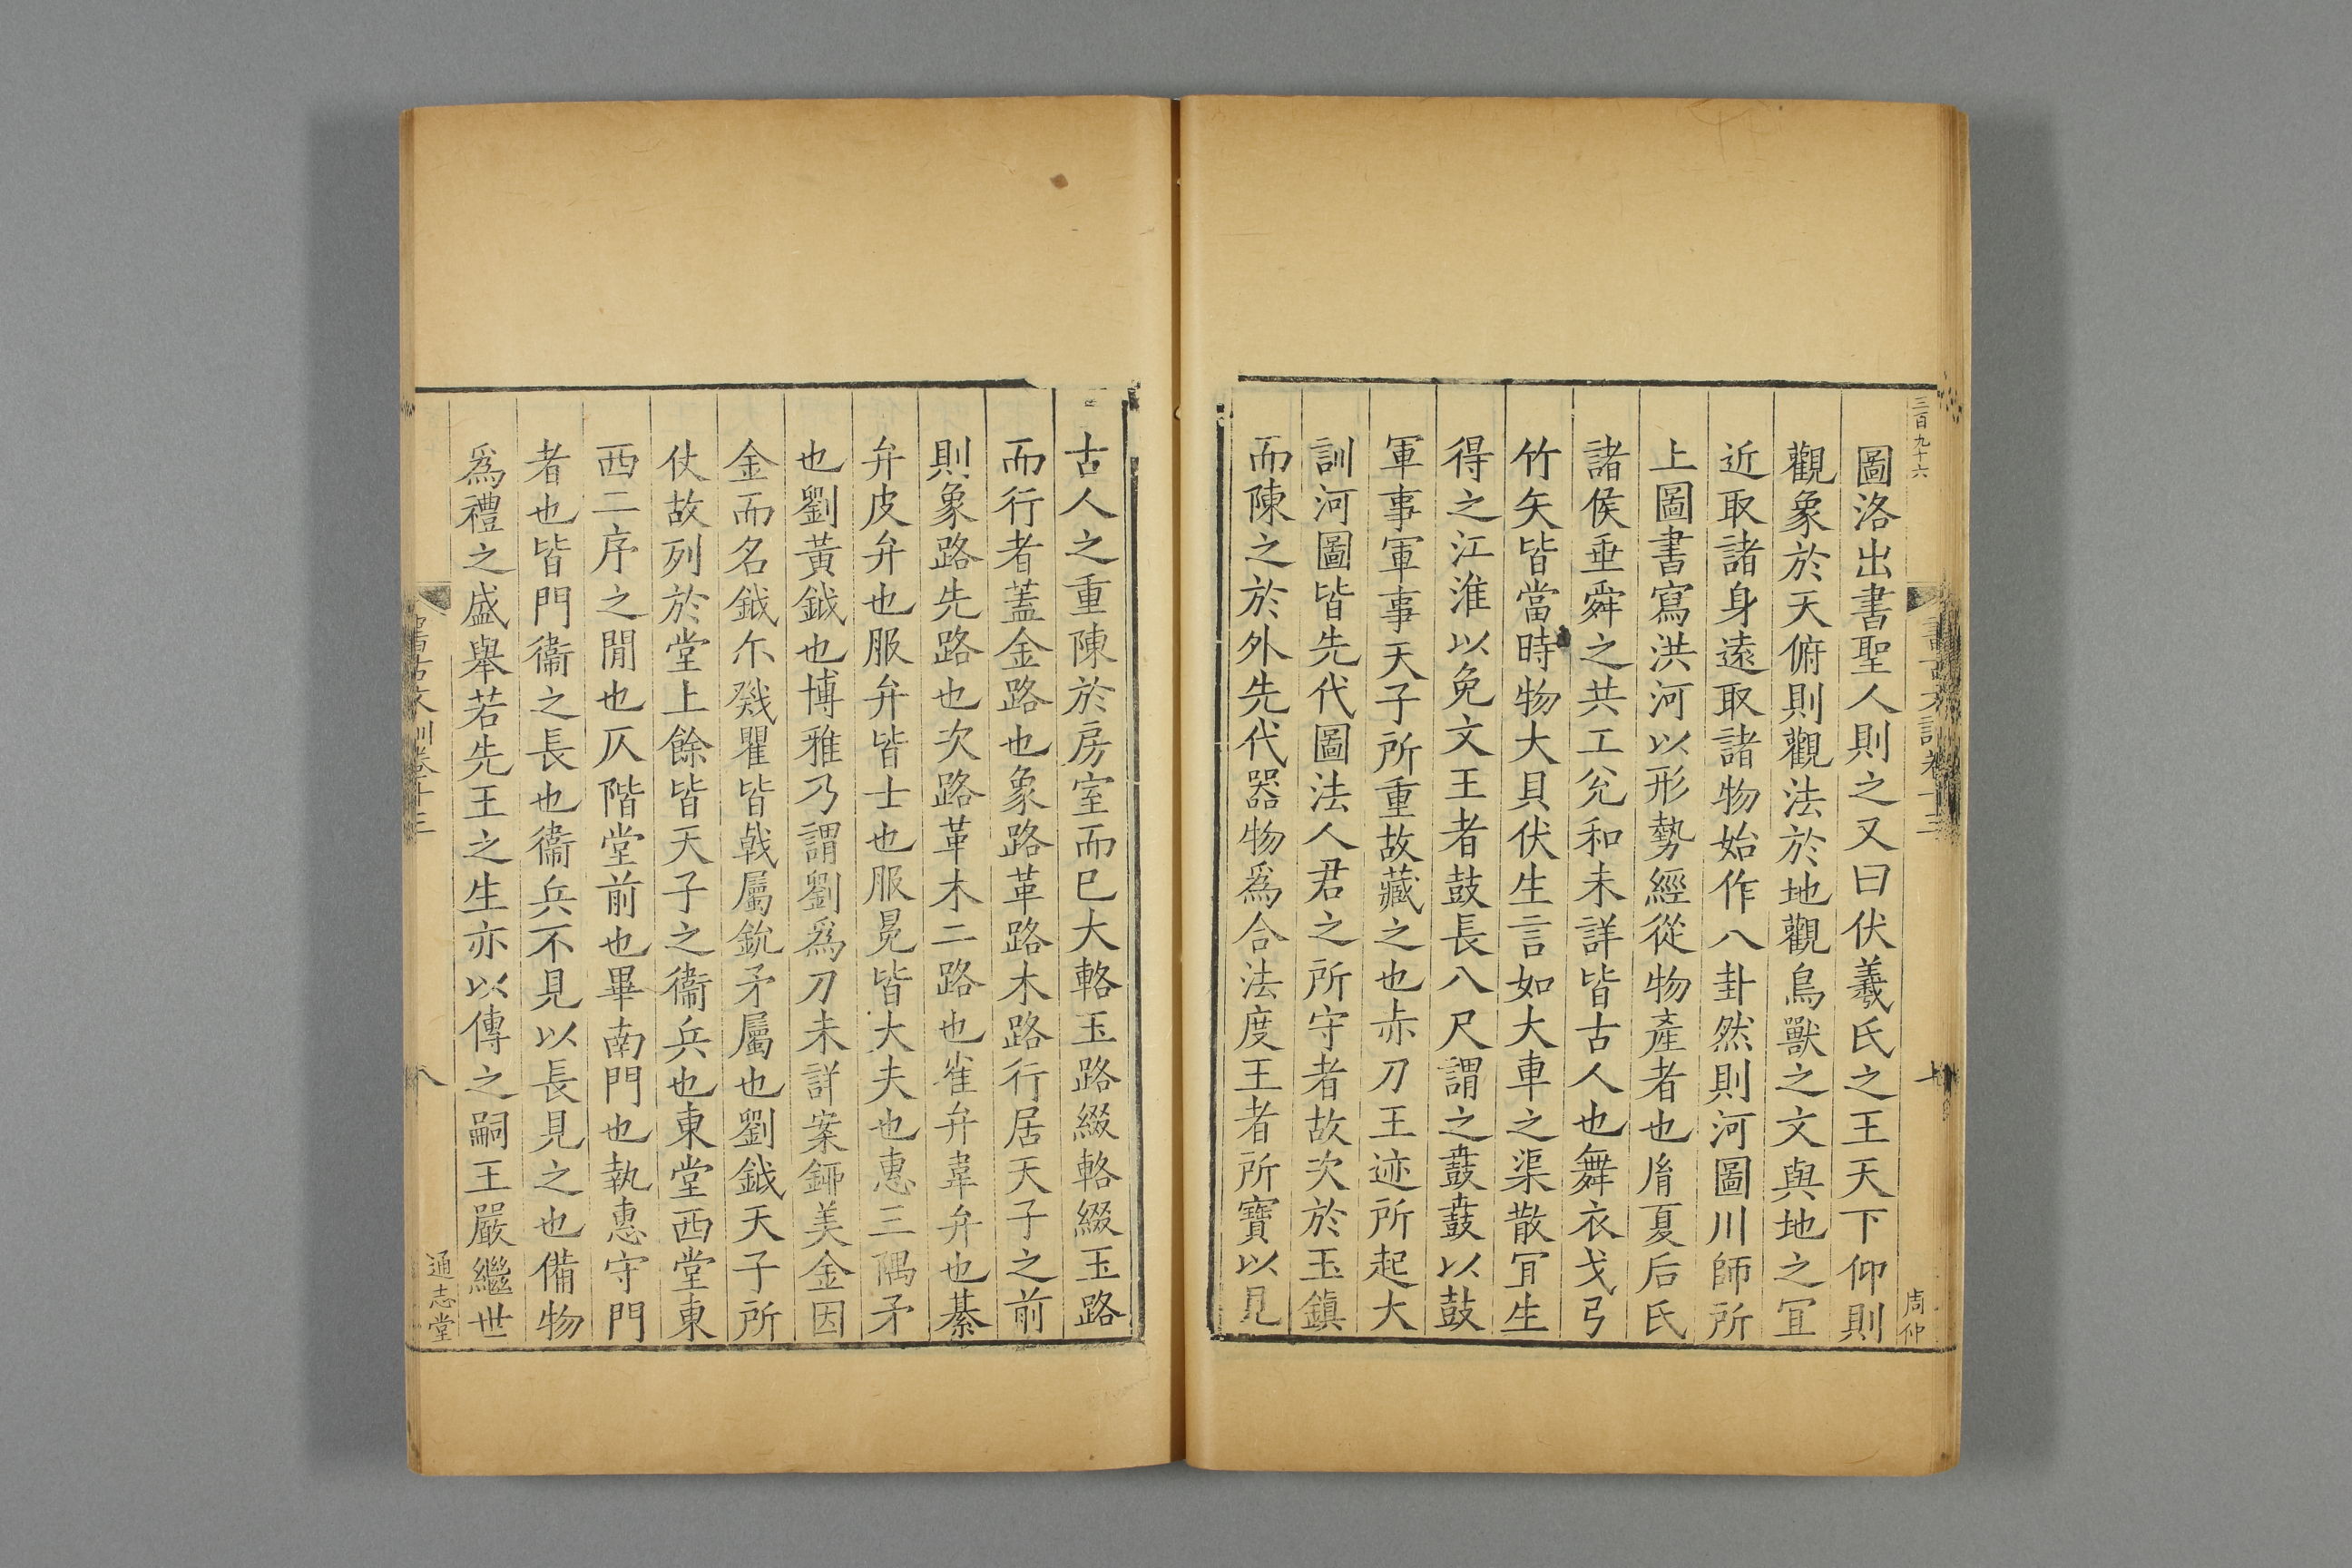 三百九十六
圖洛出書聖人則之又曰伏羲氏之王天下仰則
觀象於天俯則觀法於地觀鳥獸之文與地之宐
近取諸身遠取諸物始作八卦然則河圖川師所
上圖書寫洪河以形勢經從物產者也胤夏后氏
諸侯垂舜之共工兊和未詳皆古人也舞衣戈弓
竹矢皆當時物大貝伏生言如大車之渠散宐生
得之江淮以免文王者鼓長八尺謂之鼖鼖以鼓
軍事軍事天子所重故藏之也赤刀王迹所起大
訓河圖皆先代圖法人君之所守者故次於玉鎮
而陳之於外先代器物爲合法度王者所寶以見
周仲
古人之重陳於房室而巳大輅玉路綴輅綴玉路
而行者蓋金路也象路革路木路行居天子之前
則象路先路也次路革木二路也雀弁韋弁也綦
弁皮弁也服弁皆士也服冕皆大夫也惠三隅矛
也劉黃鉞也博雅乃謂劉爲刀未詳案鉚美金因
金而名鉞尒戣瞿皆戟屬鈗矛屬也劉鉞天子所
仗故列於堂上餘皆天子之衞兵也東堂西堂東
西二序之閒也仄階堂前也畢南門也執惠守門
者也皆門衞之長也衞兵不見以長見之也備物
爲禮之盛舉若先王之生亦以傳之嗣王嚴繼世
書古文訓卷十三
八
通志堂